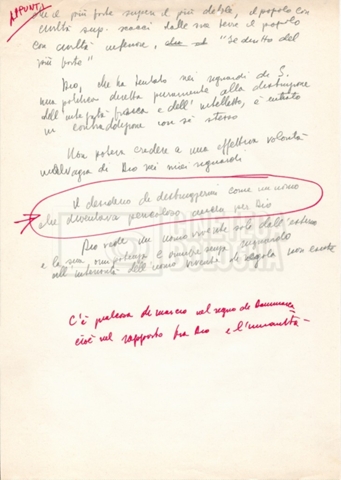 APPUNTI
che il più forte superi il più debole, il popolo con
civiltà sup. scacci dalle sue terre il popolo
con civiltà inferiore, "Se diritto del
più forte"
Dio, che ha tentato nei riguardi di S.
una politica diretta puramente alla distruzione
dell'integrità fisica e dell'intelletto, è entrato
in contraddizione con se stesso
Non potevo credere a una effettiva volontà
malvagia di Dio nei miei riguardi
Il desiderio di distruggermi come un uomo
che diventava pericoloso, anche per Dio
Dio vede un uomo vivente solo dall'esterno
e la sua onnipotenza e
nell'interiorità dell'uomo vivente di regola non esiste
C'è qualcosa di marcio nel regno di Danimarca
cioè nel rapporto fra Dio e l'umanità